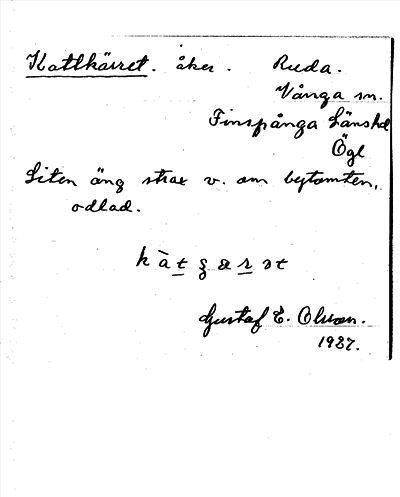 Kattkärret. åker. Ruda.
Vånga sn.
Finspånga Länshd
Ögl
Liten äng strax v. om bytomten,
odlad.
Gustaf E. Olsson.
1937.